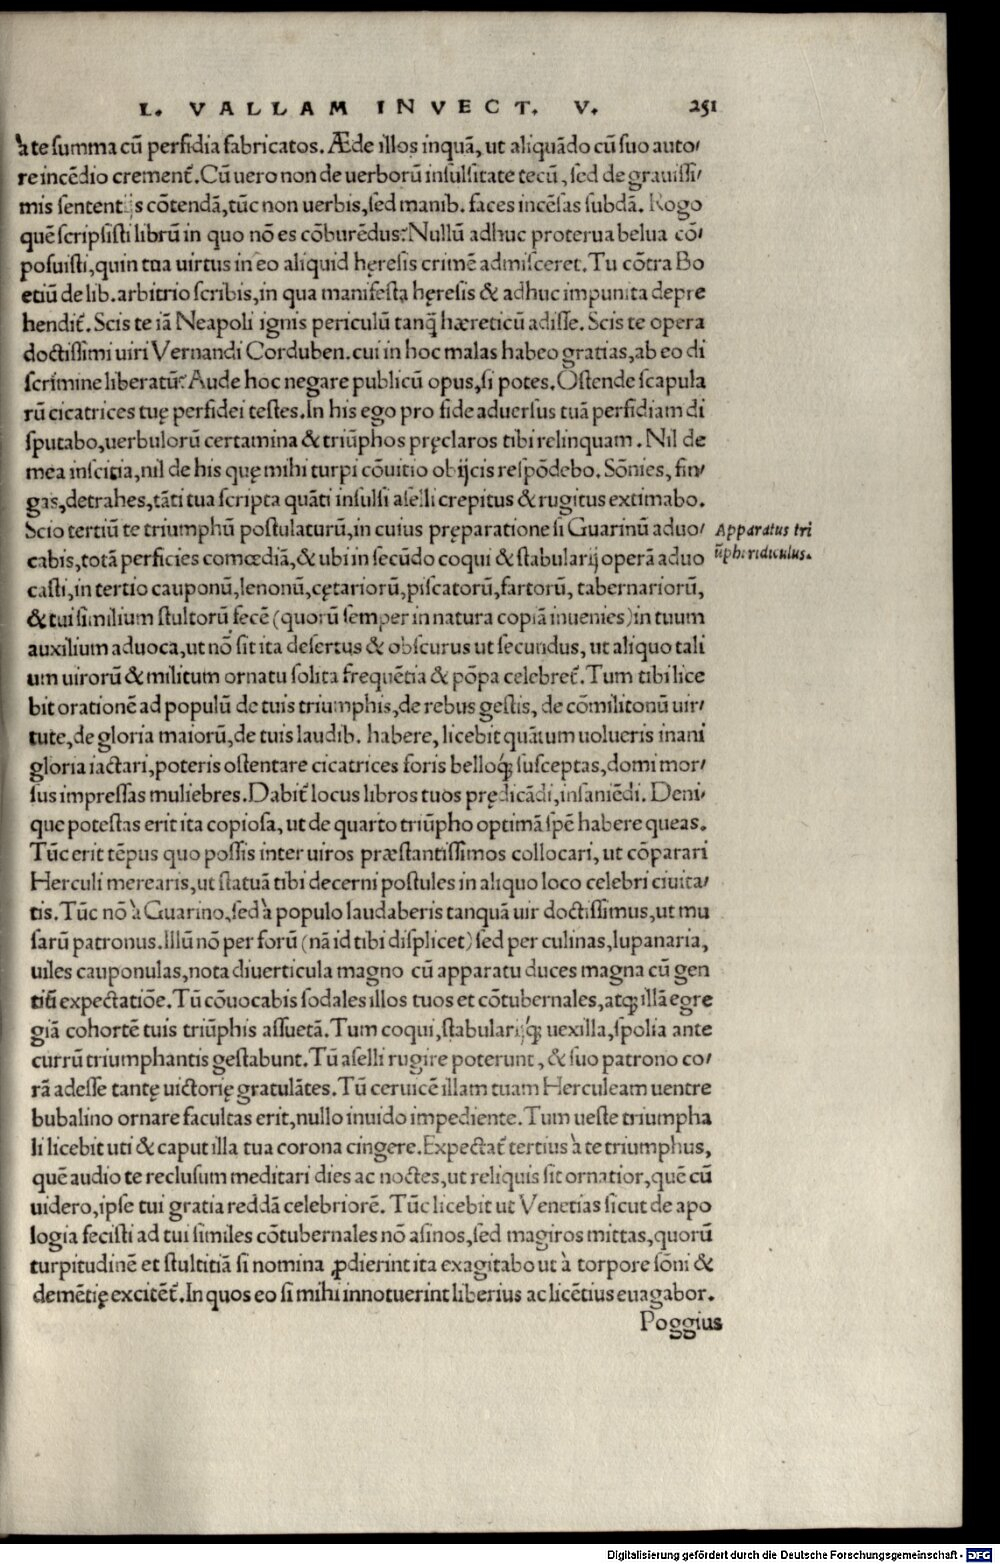 L. VALLAM INVECT. V. 251
à te summa cũ perfidia fabricatos. Æde illos inquã, ut aliquãdo cũ suo auto/
re incẽdio crement̃. Cũ uero non de uerborũ insulsitate tecũ, sed de grauissi/
mis sententijs cõtendã, tũc non uerbis, sed manib. faces incẽsas subdã. Rogo
quẽ scripsisti librũ in quo nõ es cõburẽdus? Nullũ adhuc proterua belua cõ/
posuisti, quin tua uirtus in eo aliquid hęresis crimẽ admisceret. Tu cõtra Bo
etiũ de lib. arbitrio scribis, in qua manifesta hęresis & adhuc impunita depre
hendit̃. Scis te iã Neapoli ignis periculũ tanq̃ hæreticũ adisse. Scis te opera
doctissimi uiri Vernandi Corduben. cui in hoc malas habeo gratias, ab eo di
scrimine liberatũ? Aude hoc negare publicũ opus, si potes. Ostende scapula
rũ cicatrices tuę perfidei testes. In his ego pro fide aduersus tuã perfidiam di
sputabo, uerbulorũ certamina & triũphos pręclaros tibi relinquam. Nil de
mea inscitia, nil de his quę mihi turpi cõuitio obijcis respõdebo. Sõnies, fin/
gas, detrahes, tãti tua scripta quãti insulsi aselli crepitus & rugitus extimabo.
Scio tertiũ te triumphũ postulaturũ, in cuius pręparatione si Guarinũ aduo/
cabis, totã perficies comœdiã, & ubi in secũdo coqui & stabularij operã aduo
casti, in tertio cauponũ, lenonũ, cętariorũ, piscatorũ, fartorũ, tabernariorũ,
& tui similium stultorũ fecẽ (quorũ semper in natura copiã inuenies) in tuum
auxilium aduoca, ut nõ sit ita desertus & obscurus ut secundus, ut aliquo tali
um uirorũ & militum ornatu solita frequẽtia & põpa celebret̃. Tum tibi lice
bit orationẽ ad populũ de tuis triumphis, de rebus gestis, de cõmilitonũ uir/
tute, de gloria maiorũ, de tuis laudib. habere, licebit quãtum uolueris inani
gloria iactari, poteris ostentare cicatrices foris belloq́ȝ susceptas, domi mor/
sus impressas muliebres. Dabit̃ locus libros tuos prędicãdi, insaniẽdi. Deni/
que potestas erit ita copiosa, ut de quarto triũpho optimã spẽ habere queas.
Tũc erit tẽpus quo possis inter uiros præstantissimos collocari, ut cõparari
Herculi merearis, ut statuã tibi decerni postules in aliquo loco celebri ciuita/
tis. Tũc nõ à Guarino, sed à populo laudaberis tanquã uir doctissimus, ut mu
sarũ patronus. Illũ nõ per forũ (nã id tibi displicet) sed per culinas, lupanaria,
uiles cauponulas, nota diuerticula magno cũ apparatu duces magna cũ gen
tiũ expectatiõe. Tũ cõuocabis sodales illos tuos et cõtubernales, atqȝ illã egre
giã cohortẽ tuis triũphis assuetã. Tum coqui, stabularijq́ȝ uexilla, spolia ante
currũ triumphantis gestabunt. Tũ aselli rugire poterunt, & suo patrono co/
rã adesse tantę uictorię gratulãtes. Tũ ceruicẽ illam tuam Herculeam uentre
bubalino ornare facultas erit, nullo inuido impediente. Tum ueste triumpha
li licebit uti & caput illa tua corona cingere. Expectat̃ tertius à te triumphus,
quẽ audio te reclusum meditari dies ac noctes, ut reliquis sit ornatior, quẽ cũ
uidero, ipse tui gratia reddã celebriorẽ. Tũc licebit ut Venetias sicut de apo
logia fecisti ad tui similes cõtubernales nõ asinos, sed magiros mittas, quorũ
turpitudinẽ et stultitiã si nomina ꝓdierint ita exagitabo ut à torpore sõni &
demẽtię excitẽt̃. In quos eo si mihi innotuerint liberius ac licẽtius euagabor.
Poggius
Apparatus tri
ũphi ridiculus.
Digitalisierung gefördert durch die Deutsche Forschungsgemeinschaft - DFG